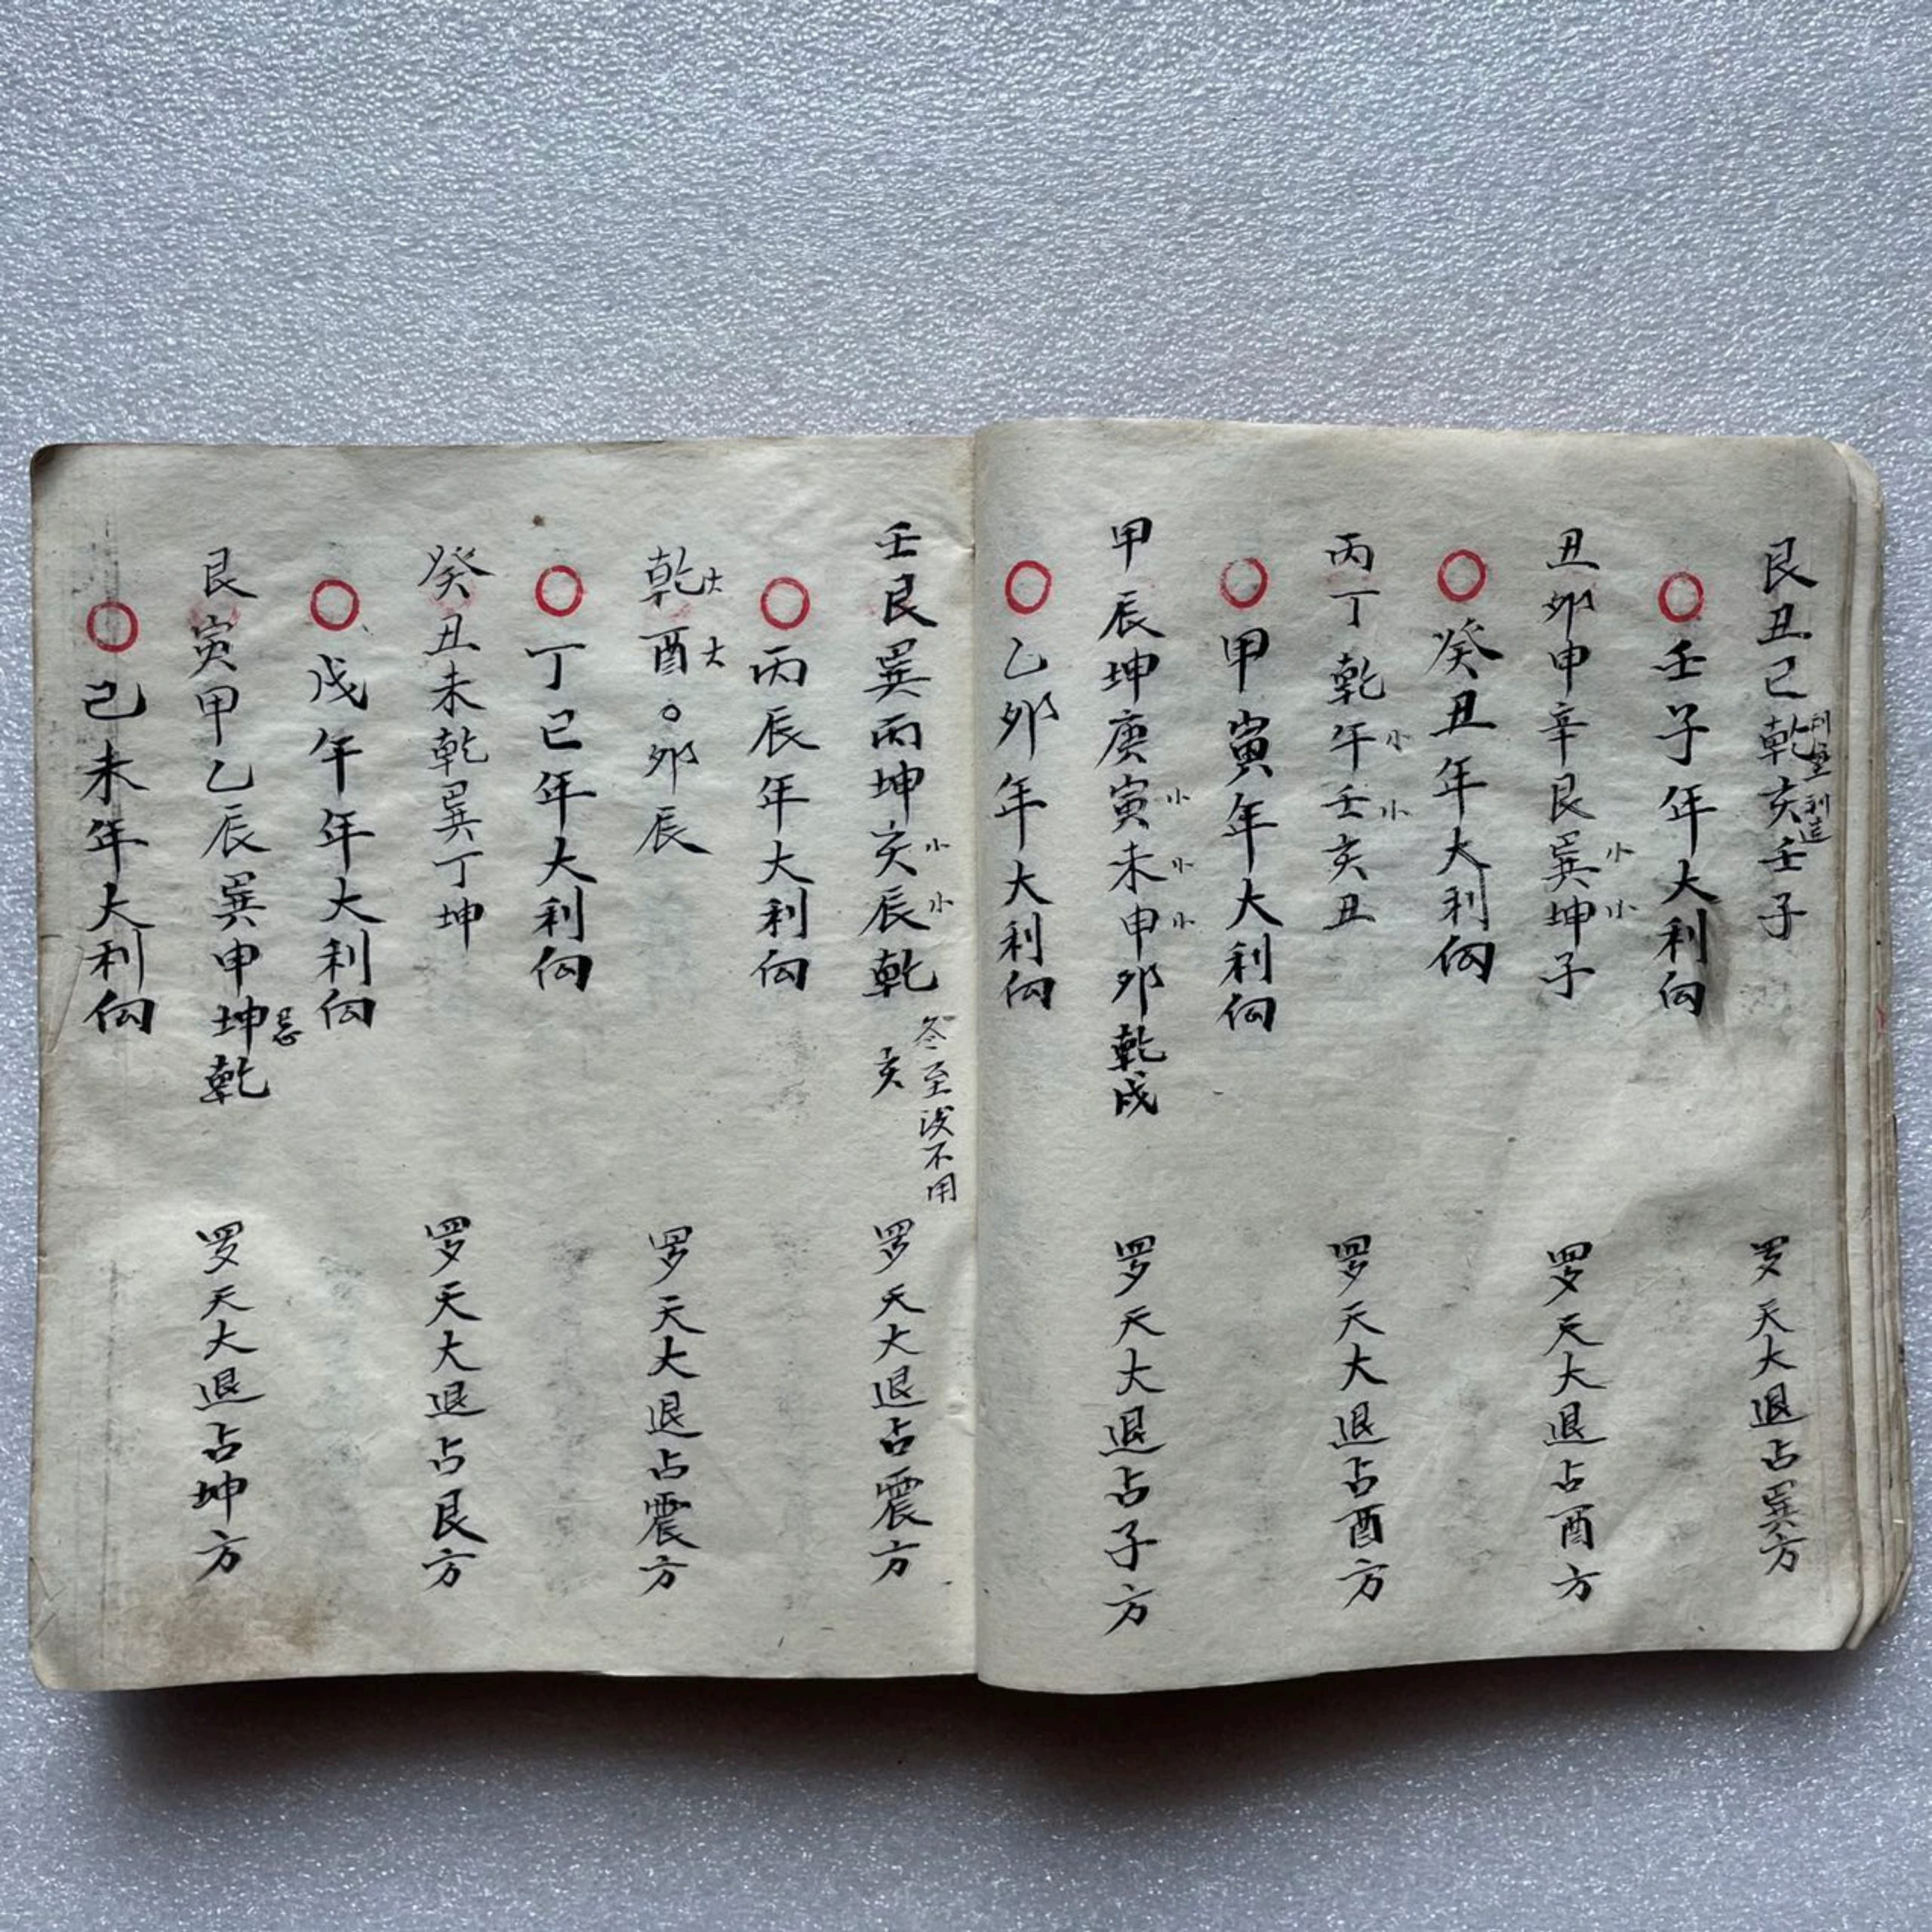 艮丑巳乾亥壬子 罗天大退占巽方
利
利造
壬子年大利向
丑卯申辛艮巽小坤小子 罗天大退占酉方
癸丑年大利向
丙丁乾午小壬小亥丑 罗天大退占酉方
甲寅年大利向
甲辰坤庚寅小未小申小卯乾戌 罗天大退占子方
乙卯年大利向
壬艮巽丙坤亥小辰小乾亥 罗天大退占震方
冬至后不用
丙辰年大利向
乾大酉大○卯辰 罗天大退占震方
丁巳年大利向
癸丑未乾巽丁坤 罗天大退占艮方
戊午年大利向
艮寅甲乙辰巽申坤乾 罗天大退占坤方
己未年大利向